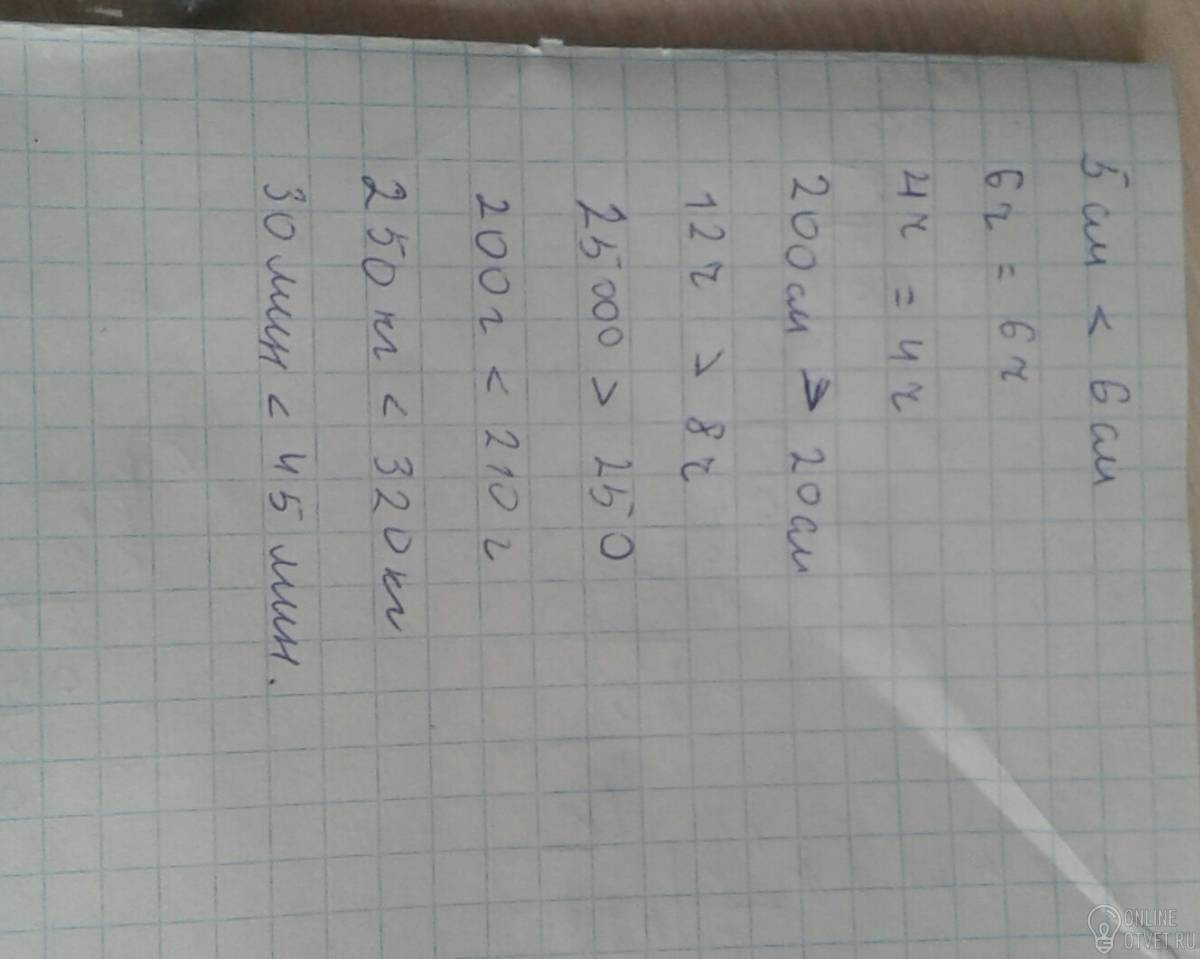 5 см < 6 см
6ч = 6ч
4ч = 4ч
200см > 20см
12ч > 8ч
25000 > 250
200г < 210г
250кг < 320кг
30мин < 45 мин.
ONLINE
OTVET.RU